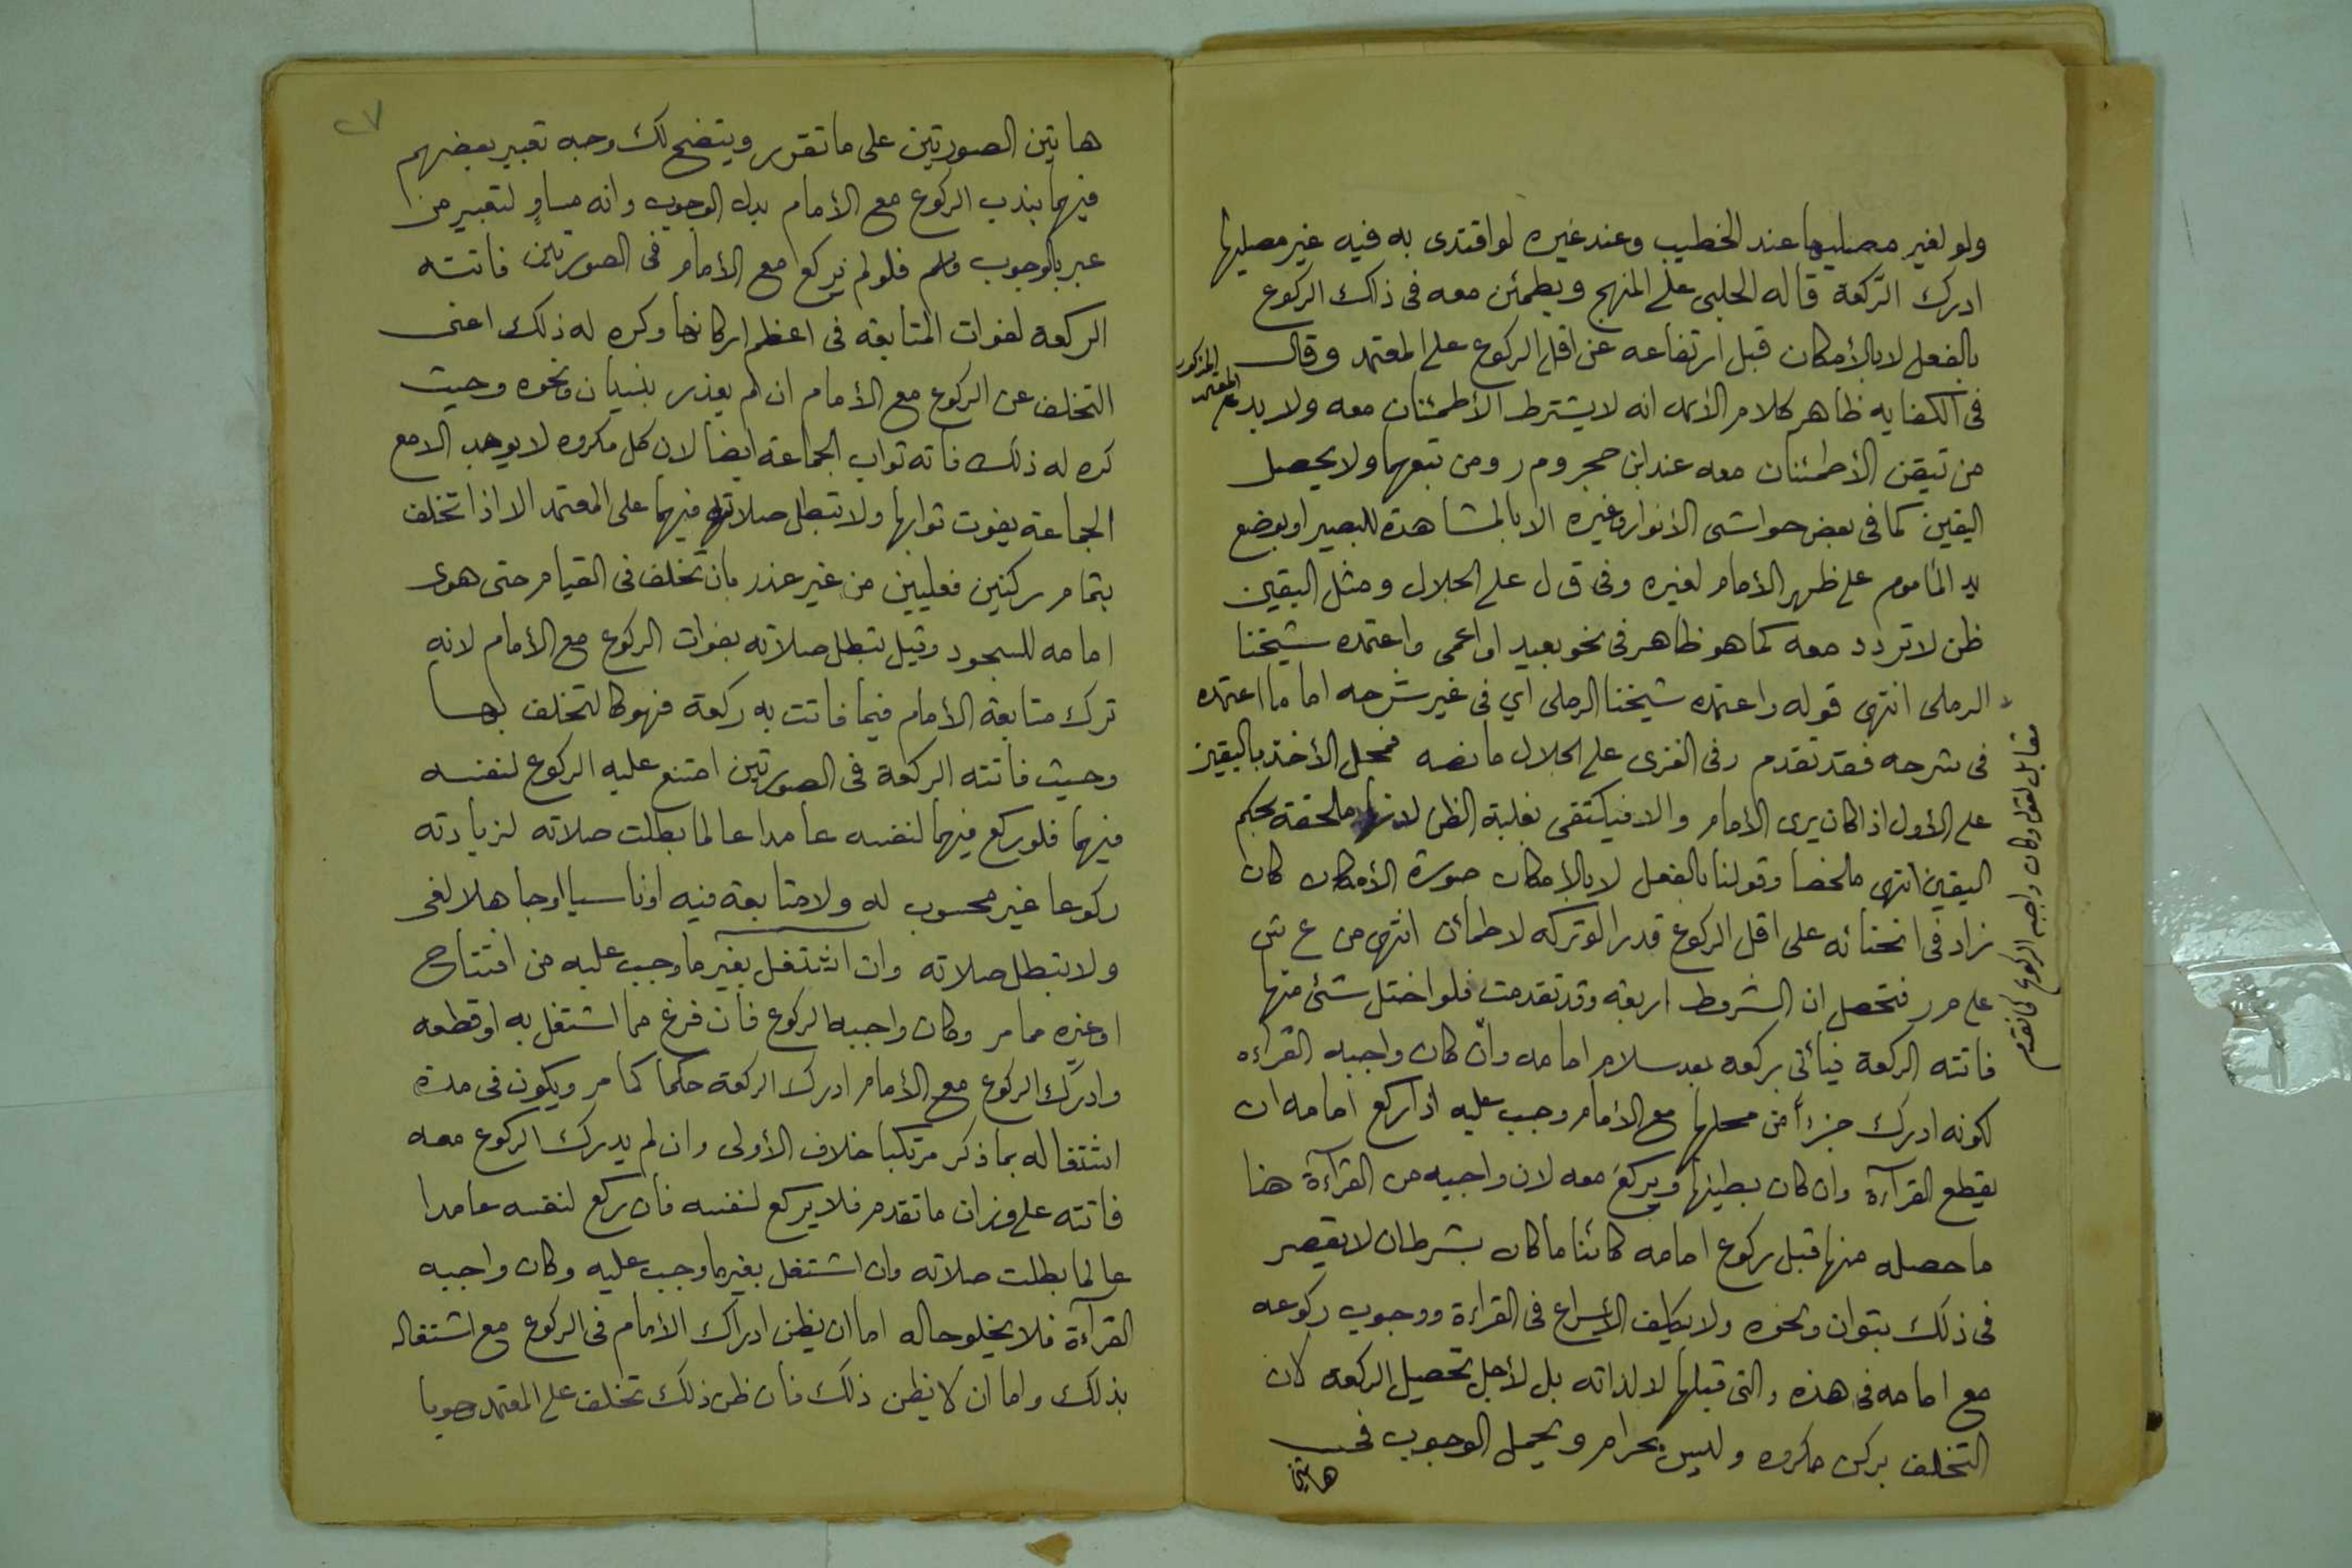 ولو لغير مصليها عند الخطيب وعند غيره لو اقتدى به فيه غير مصليها
ادرك الركعة قاله الحلبي على المنهج ويطمئن معه في ذلك الركوع
بالفعل لا بالأمكان قبل ارتفاعه عن اقل الركوع على المعتمد وقال
في الكفايه ظاهر كلام الأئمه انه لا يشترط الأطمئنان معه ولا بد على
المعتمد المذكور
من تيقن الأطمئنان معه عند ابن حجر و م ر ومن تبعهما ولا يحصل
اليقين كما في بعض حواشى الأنوار وغيره الا بالمشاهدة للبصير او بوضع
يد المأموم على ظهر الأمام لغيره وفى ق ل على الجلال ومثل اليقين
ظن لا تردد معه كما هو ظاهر في نحو بعيد او اعمى واعتمده شيخنا
الرملى انتهى قوله واعتمده شيخنا الرملى اي في غير شرحه اما ما اعتمده
في شرحه فقد تقدم وفى الغزى على الجلال ما نصه فمحل الأخذ باليقين
على الأول اذا كان يرى الأمام والا فيكتفى بغلبة الظن لانها ملحقة بحكم
اليقين انتهى ملخصا وقولنا بالفعل لا بالأمكان صورة الأمكان كان
زاد في انحنائه على اقل الركوع قدرا لو تركه لاطمأن انتهى من ع ش
على م ر فتحصل ان الشروط اربعة وقد تقدمت فلو اختل شئ منها
فاتته الركعة فيأتى بركعه بعد سلام امامه وأن كان واجبه القراءه
لكونه ادرك جزءأ من محلها مع الأمام وجب عليه اذا ركع امامه ان
يقطع القرآءة وان كان بطيئها ويركع معه لان واجبه من القرآءة هنا
ما حصله منها قبل ركوع امامه كائنا ما كان بشرط ان لا يقصر
في ذلك بتوان ونحوه ولا يكلف الأسراع في القراءة ووجوب ركوعه
مع امامه في هذه والتى قبلها لا لذاته بل لأجل تحصيل الركعة لان
التخلف بركن مكروه وليس بحرام ويحمل الوجوب في
هاتين
مقابل لقوله وكان واجبه الركوع كما تقدم
٢٧
هاتين الصورتين على ما تقرر ويتضح لك وجه تعبير بعضهم
فيهما بندب الركوع مع الأمام بدل الوجوب وانه مساوٍ لتعبير من
عبر بالوجوب فلو لم يركع مع الأمام في الصورتين فاتته
الركعة لفوات المتابعة في اعظم اركانها وكره له ذلك اعنى
التخلف عن الركوع مع الأمام ان لم يعذر بنسيان ونحوه وحيث
كره له ذلك فاته ثواب الجماعة ايضا لان كل مكروه لا يوجد الا مع
الجماعة يفوت ثوابها ولا تبطل صلاته فيهما على المعتمد الا اذا تخلف
بتمام ركنين فعليين من غير عذر بان تخلف في القيام حتى هوى
امامه للسجود وقيل تبطل صلاته بفوات الركوع مع الأمام لانه
ترك متابعة الأمام فيما فاتت به ركعة فهو كالتخلف بها
وحيث فاتته الركعة في الصورتين امتنع عليه الركوع لنفسه
فيهما فلو ركع فيهما لنفسه عامدا عالما بطلت صلاته لزيادته
ركوعا غير محسوب له ولا متابعة فيه او ناسيا او جاهلا لغى
ولا تبطل صلاته وان اشتغل بغير ما وجب عليه من افتتاح
او غيره مما مر وكان واجبه الركوع فان فرغ مما اشتغل به او قطعه
وادرك الركوع مع الأمام ادرك الركعة حكما كما مر ويكون في مدة
اشتغاله بما ذكر مرتكبا خلاف الأولى وان لم يدرك الركوع معه
فاتته على وزان ما تقدم فلا يركع لنفسه فان ركع لنفسه عامدا
عالما بطلت صلاته وان اشتغل بغير ما وجب عليه وكان واجبه
القرآءة فلا يخلو حاله اما ان يظن ادراك الأمام في الركوع مع اشتغاله
بذلك واما ان لا يظن ذلك فان ظن ذلك تخلف على المعتمد وجوبا